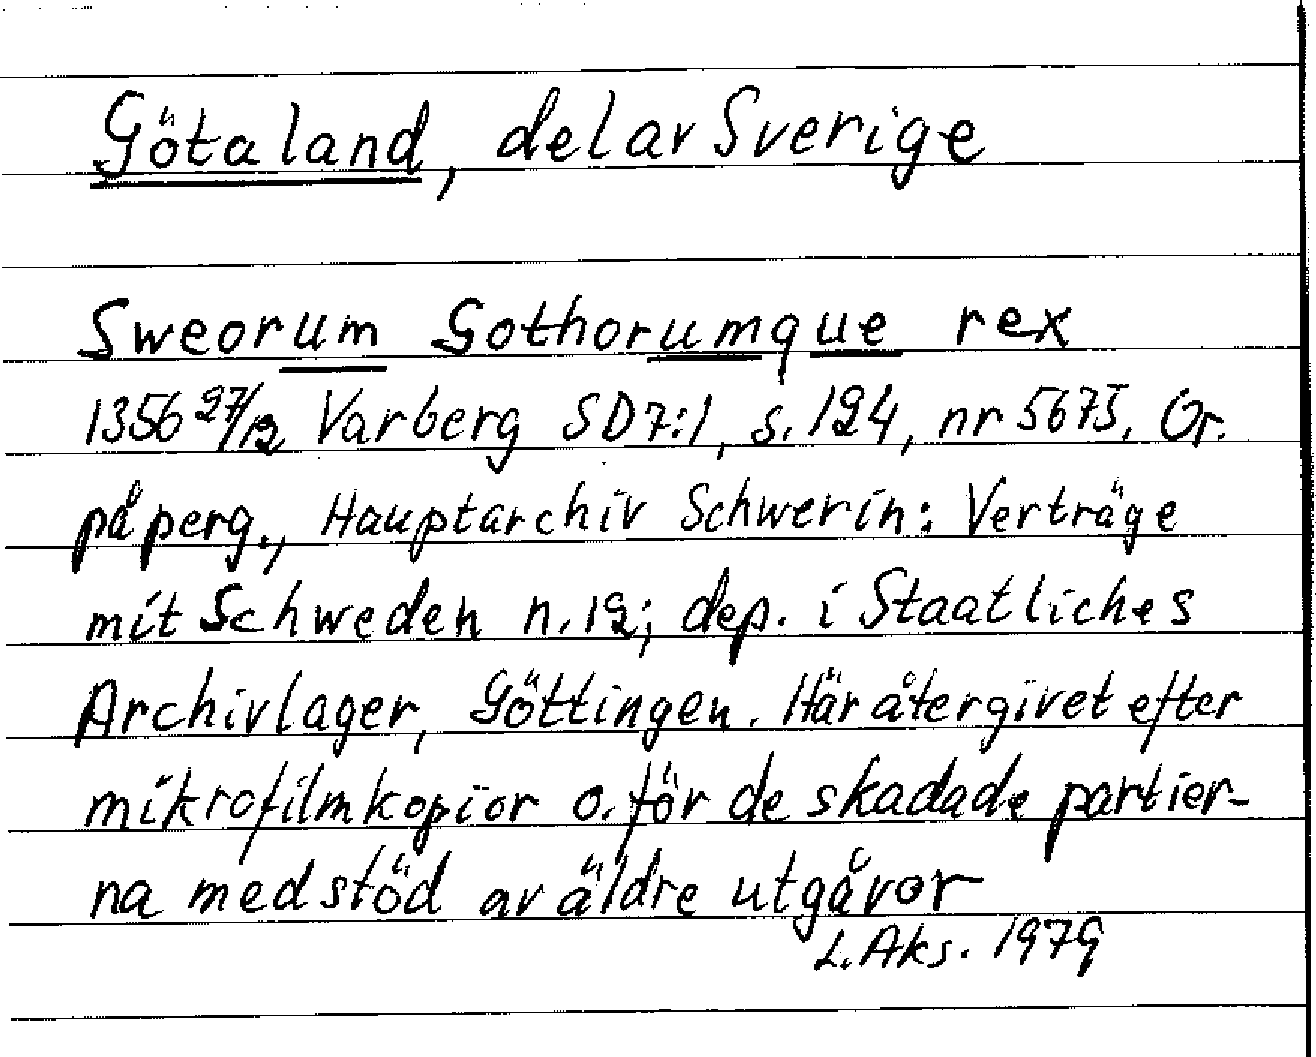 Götaland, del av Sverige
Sweorum Gothorumque rex
1356 27/12 Varberg SD 7:1, s. 124, nr 5675, Or.
på perg., Hauptarchiv Schwerin: Verträge
mit Schweden n. 12; dep. i Staatliches
Archivlager, Göttingen. Här återgivet efter
mikrofilmkopior o. för de skadade partier-
na med stöd av äldre utgåvor
L. Aks. 1979